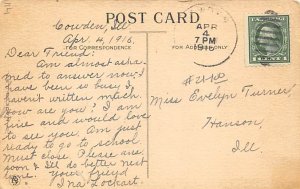 POST CARD
Cowden, Ill.
Apr. 4, 1916.
FOR CORRESPONDENCE
Dear Friend:
Am almost ashamed
to answer now, I
have been so busy I
havent written much.
How are you? I am
fine and would love
to see you. Am just
ready to go to school
must close. Please ans.
soon & Ill do better next
time. your friend
Ina Lockart.
APR
4
7PM
1916
FOR ADDRESS ONLY
Miss Evelyn Turner,
Hanson,
Ill.